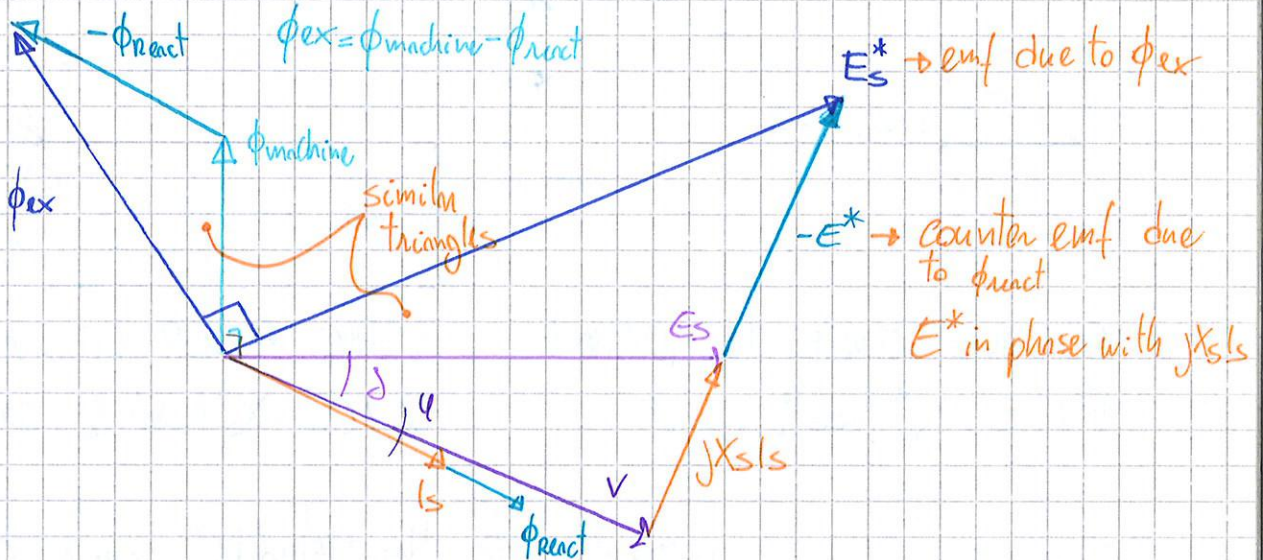 -ϕReact
ϕex = ϕmachine - ϕreact
Es* → emf due to ϕex
ϕmachine
ϕex
similar
triangles
-E* → counter emf due
to ϕreact
Es
E* in phase with jXsIs
δ
φ
jXsIs
Is
V
ϕReact